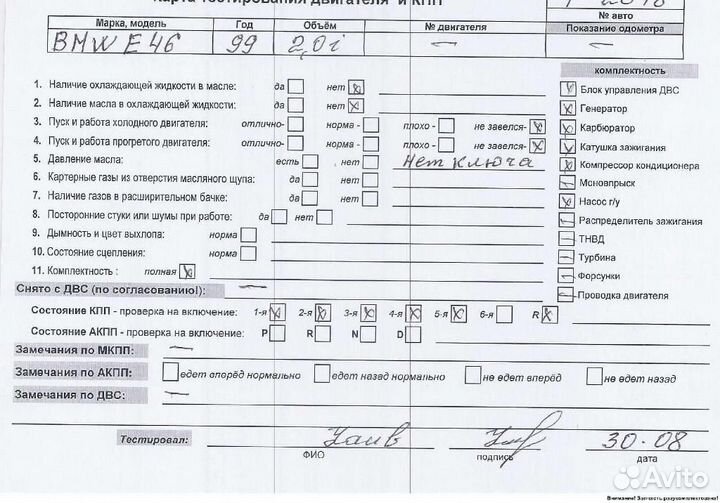 Карта тестирования двигателя и КПП
№ авто
Марка, модель Год Объём № двигателя Показание одометра
BMW E46 99 2,0i — —
комплектность
1. Наличие охлаждающей жидкости в масле: да нет
2. Наличие масла в охлаждающей жидкости: да нет
3. Пуск и работа холодного двигателя: отлично- норма - плохо - не завелся-
4. Пуск и работа прогретого двигателя: отлично- норма - плохо - не завелся-
5. Давление масла: есть нет Нет ключа
6. Картерные газы из отверстия масляного щупа: да нет
7. Наличие газов в расширительном бачке: да нет
8. Посторонние стуки или шумы при работе: да нет
9. Дымность и цвет выхлопа: норма
10. Состояние сцепления: норма
11. Комплектность : полная
Блок управления ДВС
Генератор
Карбюратор
Катушка зажигания
Компрессор кондиционера
Моновпрыск
Насос г/у
Распределитель зажигания
ТНВД
Турбина
Форсунки
Проводка двигателя
Снято с ДВС (по согласованию!): —
Состояние КПП - проверка на включение: 1-я 2-я 3-я 4-я 5-я 6-я R
Состояние АКПП - проверка на включение: P R N D
Замечания по МКПП: —
Замечания по АКПП: едет вперёд нормально едет назад нормально не едет вперёд не едет назад
Замечания по ДВС: —
Тестировал: 30-08
ФИО подпись дата
Avito
Внимание! Запчасть разукомплектована!